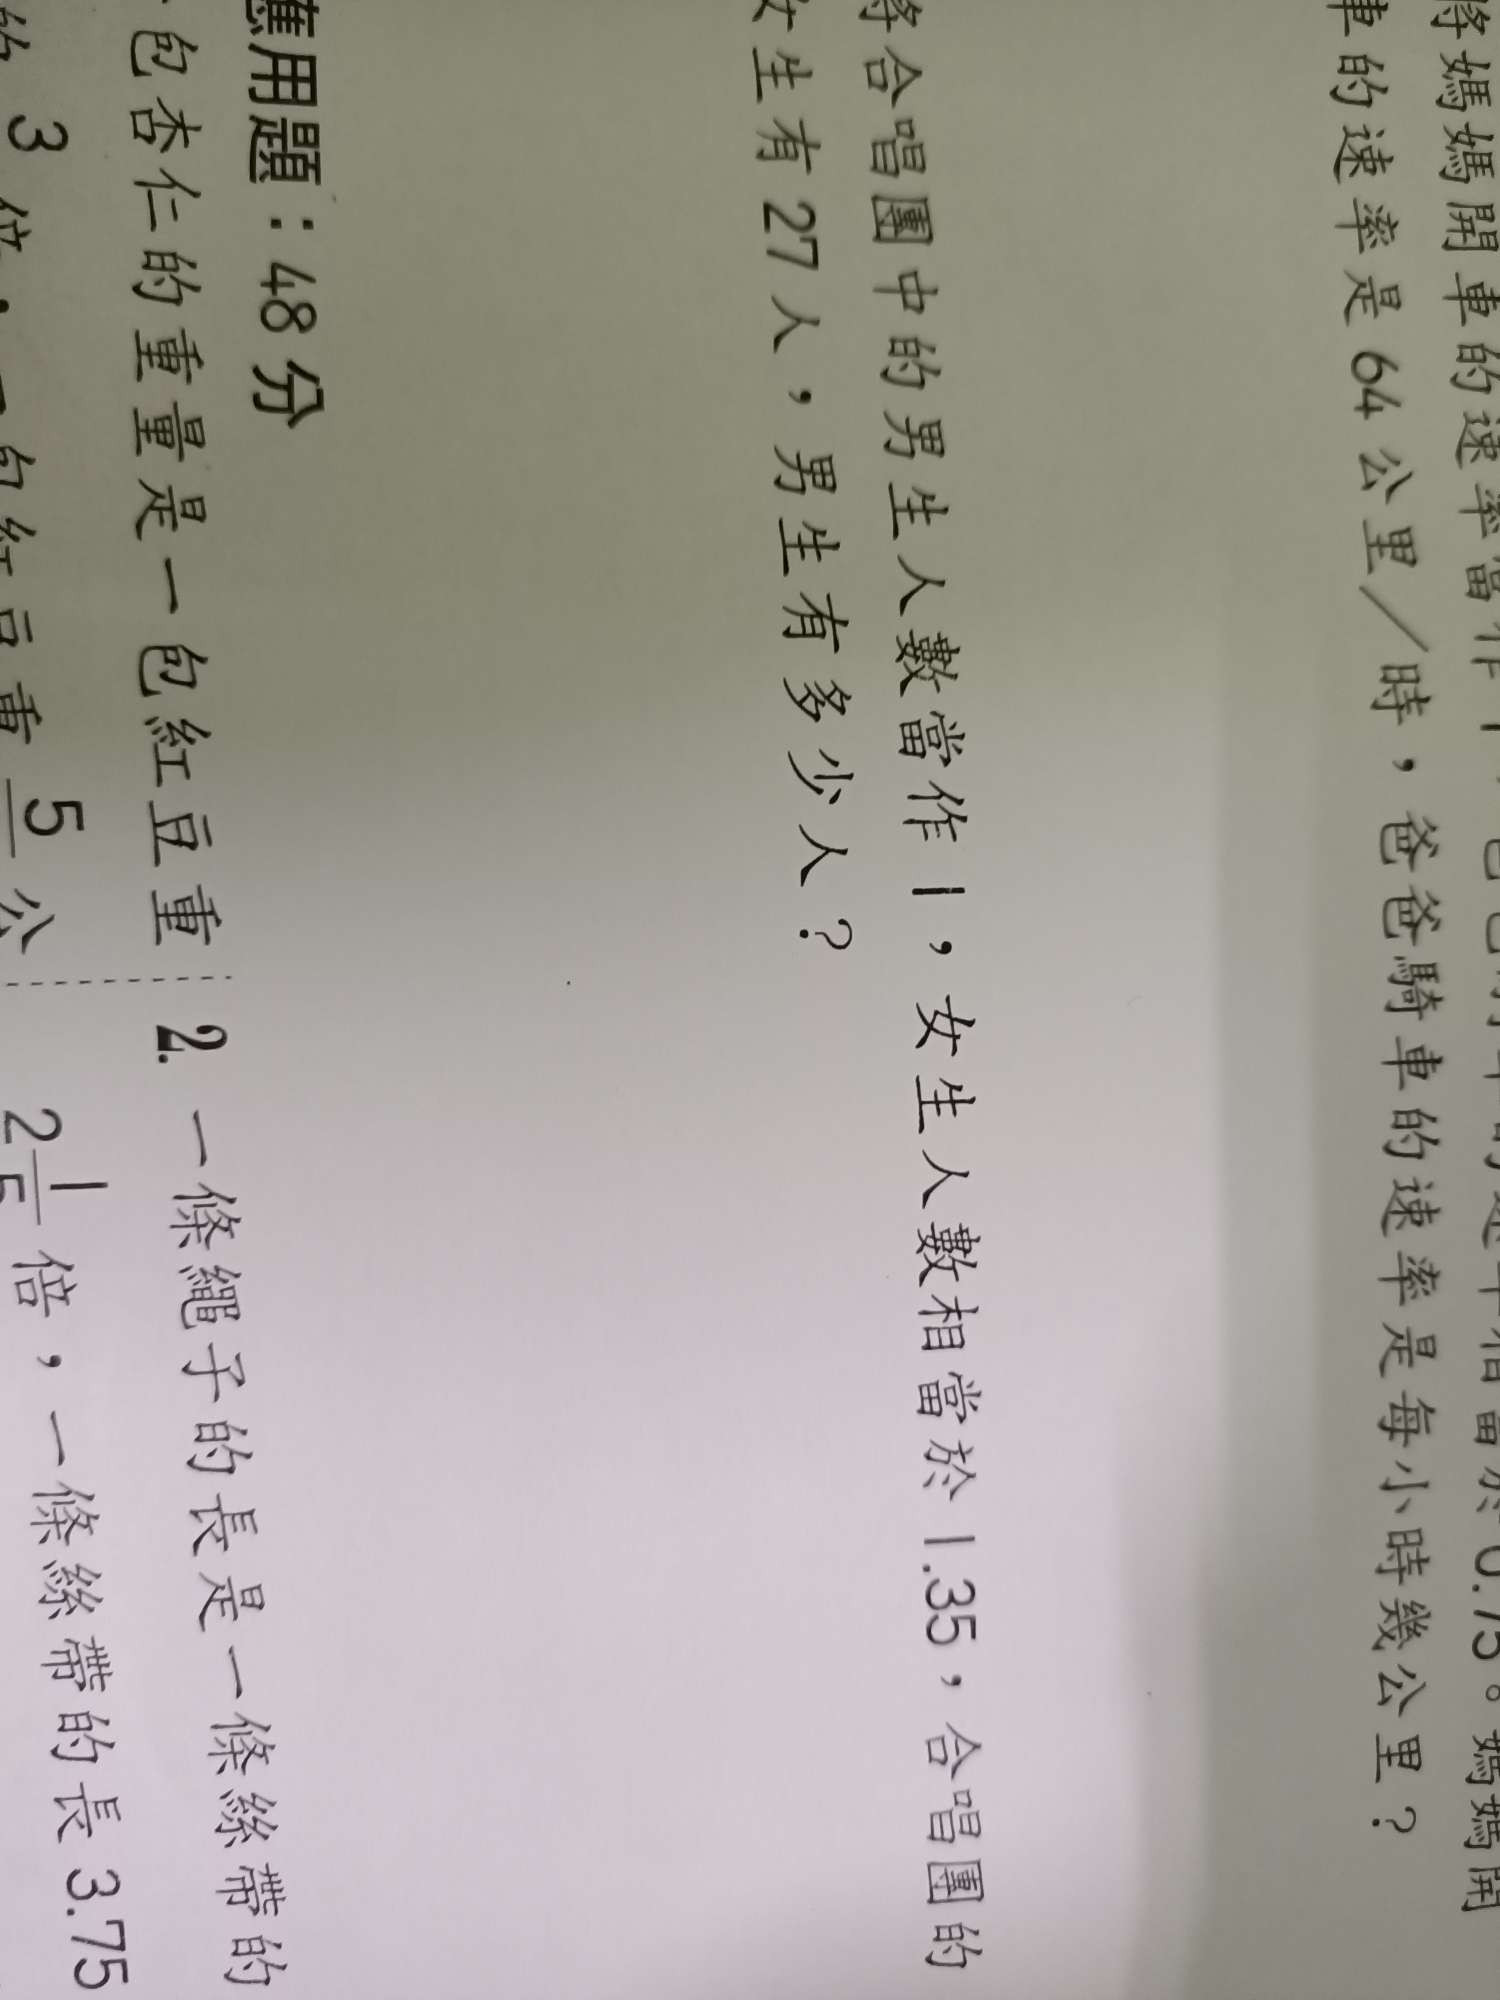 將媽媽開車的速率當作1，爸爸騎車的速率相當於0.75。媽媽開
車的速率是64公里／時，爸爸騎車的速率是每小時幾公里？
將合唱團中的男生人數當作1，女生人數相當於1.35，合唱團的
女生有27人，男生有多少人？
應用題：48分
包杏仁的重量是一包紅豆重
的 3 倍，一包紅豆重 5 公
2. 一條繩子的長是一條絲帶的
2 1/5 倍，一條絲帶的長3.75